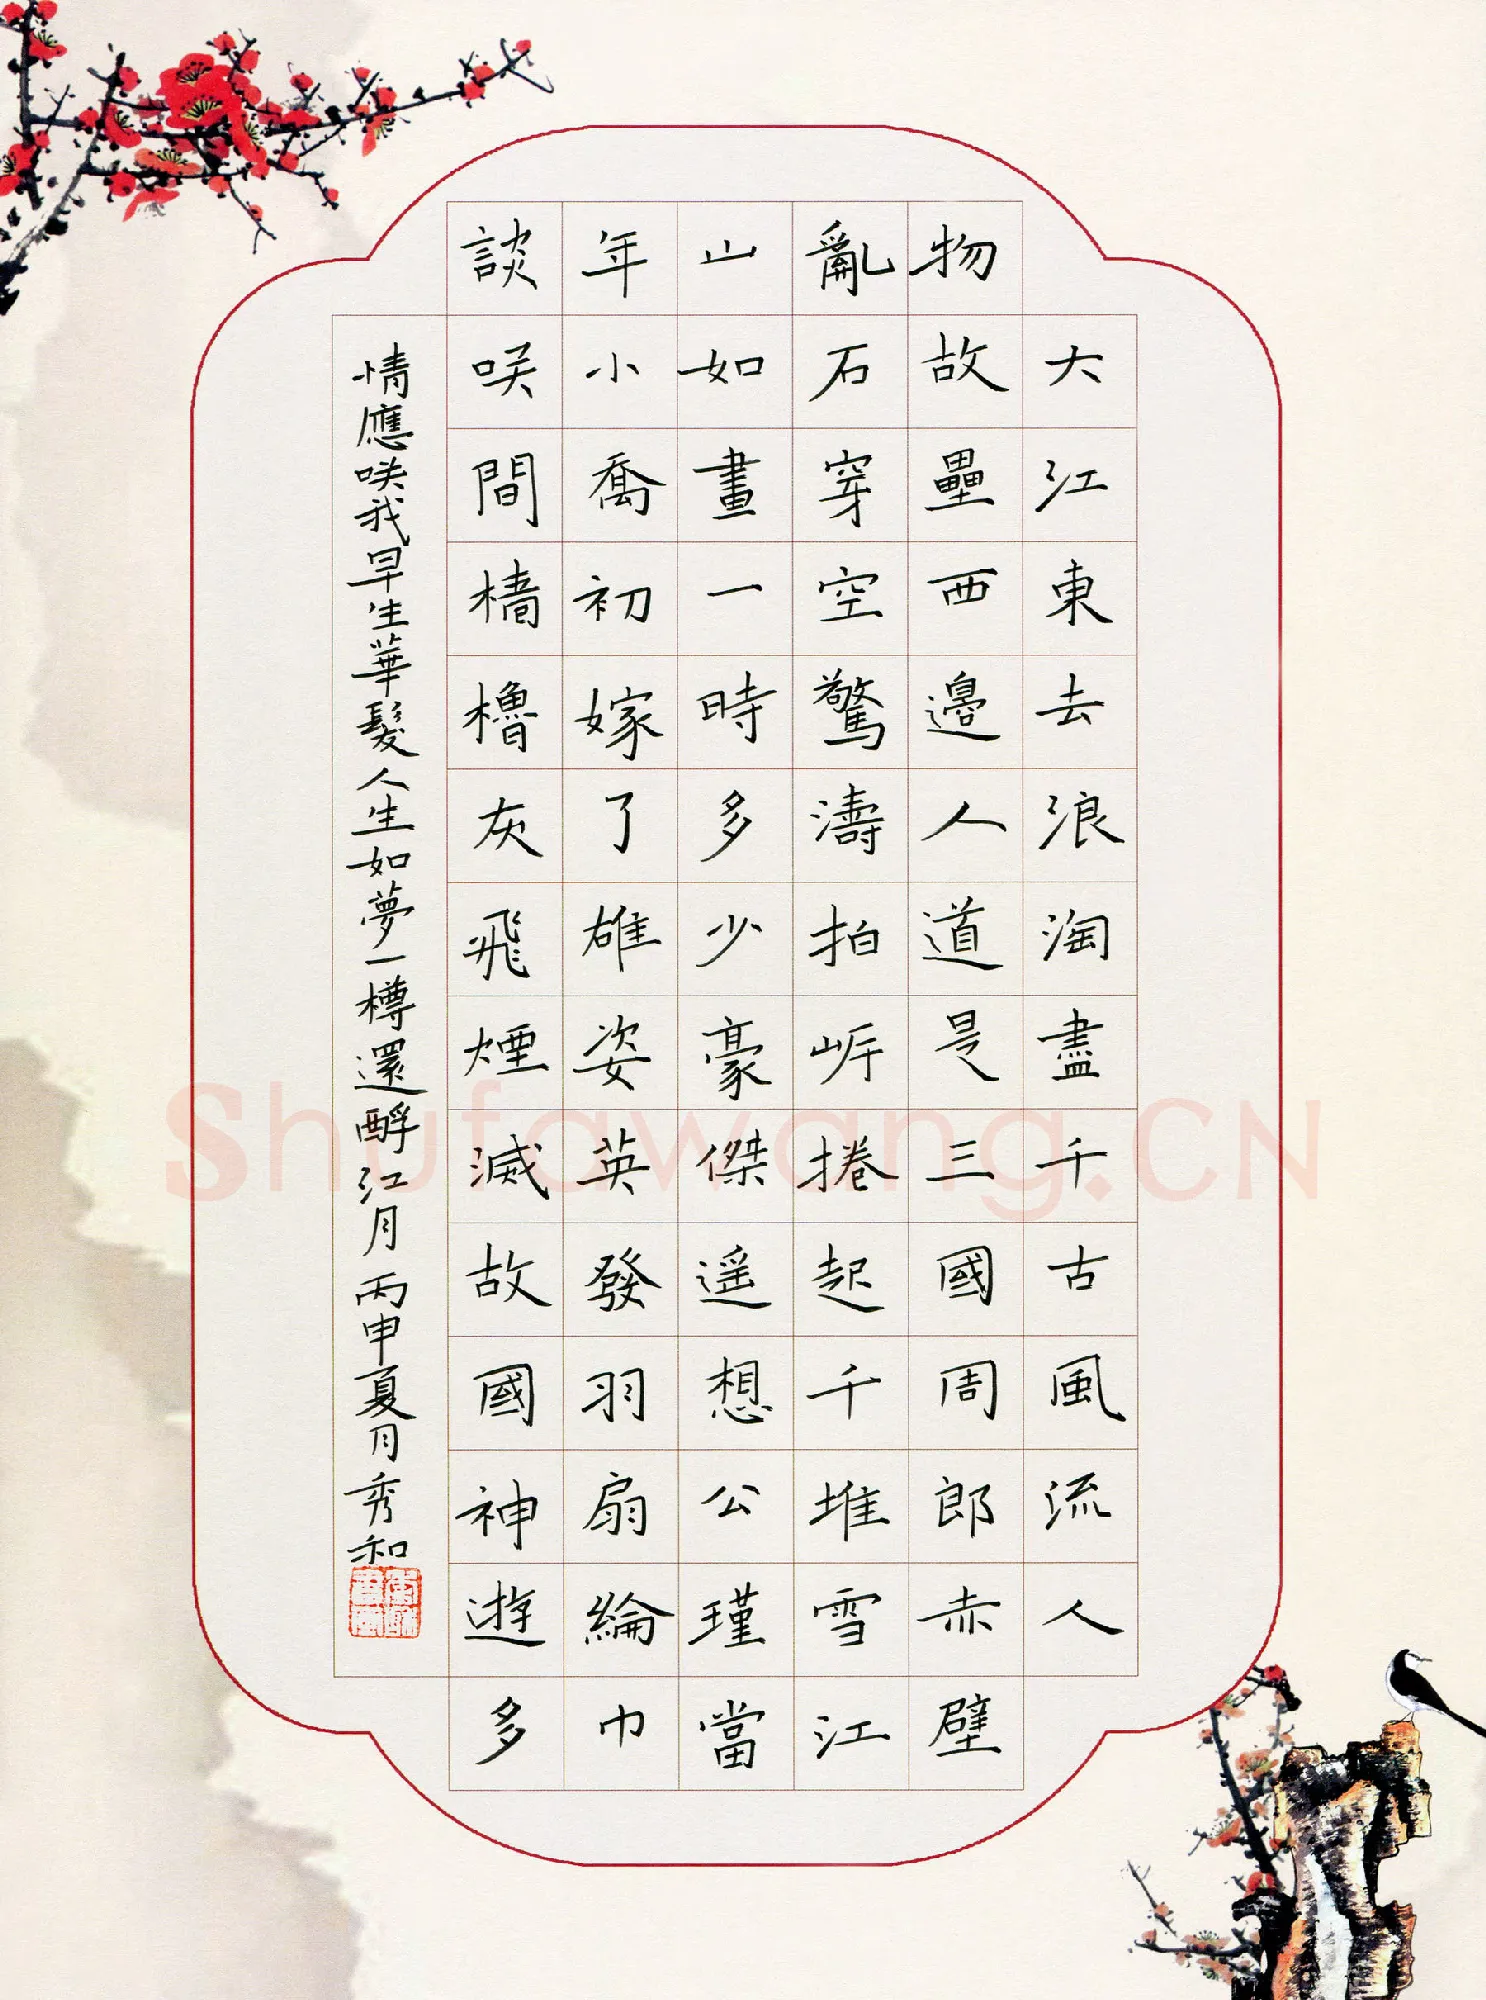 大江東去浪淘盡千古風流人
物故壘西邊人道是三國周郎赤壁
亂石穿空驚濤拍岸捲起千堆雪江
山如畫一時多少豪傑遥想公瑾當
年小喬初嫁了雄姿英發羽扇綸巾
談咲間檣櫓灰飛煙滅故國神遊多
情應咲我早生華髮人生如夢一樽還酹江月 丙申夏月秀和
Shufawang.CN